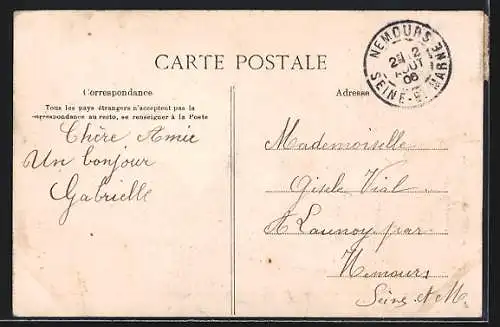 CARTE POSTALE
NEMOURS
2
AOUT
06
SEINE-ET-MARNE
Correspondance
Tous les pays étrangers n'acceptent pas la
correspondance au recto, se renseigner à la Poste
Adresse
Chère Amie
Un bonjour
Gabrielle
Mademoiselle
Gisèle Vial
A Launoy par
Nemours
Seine et M.